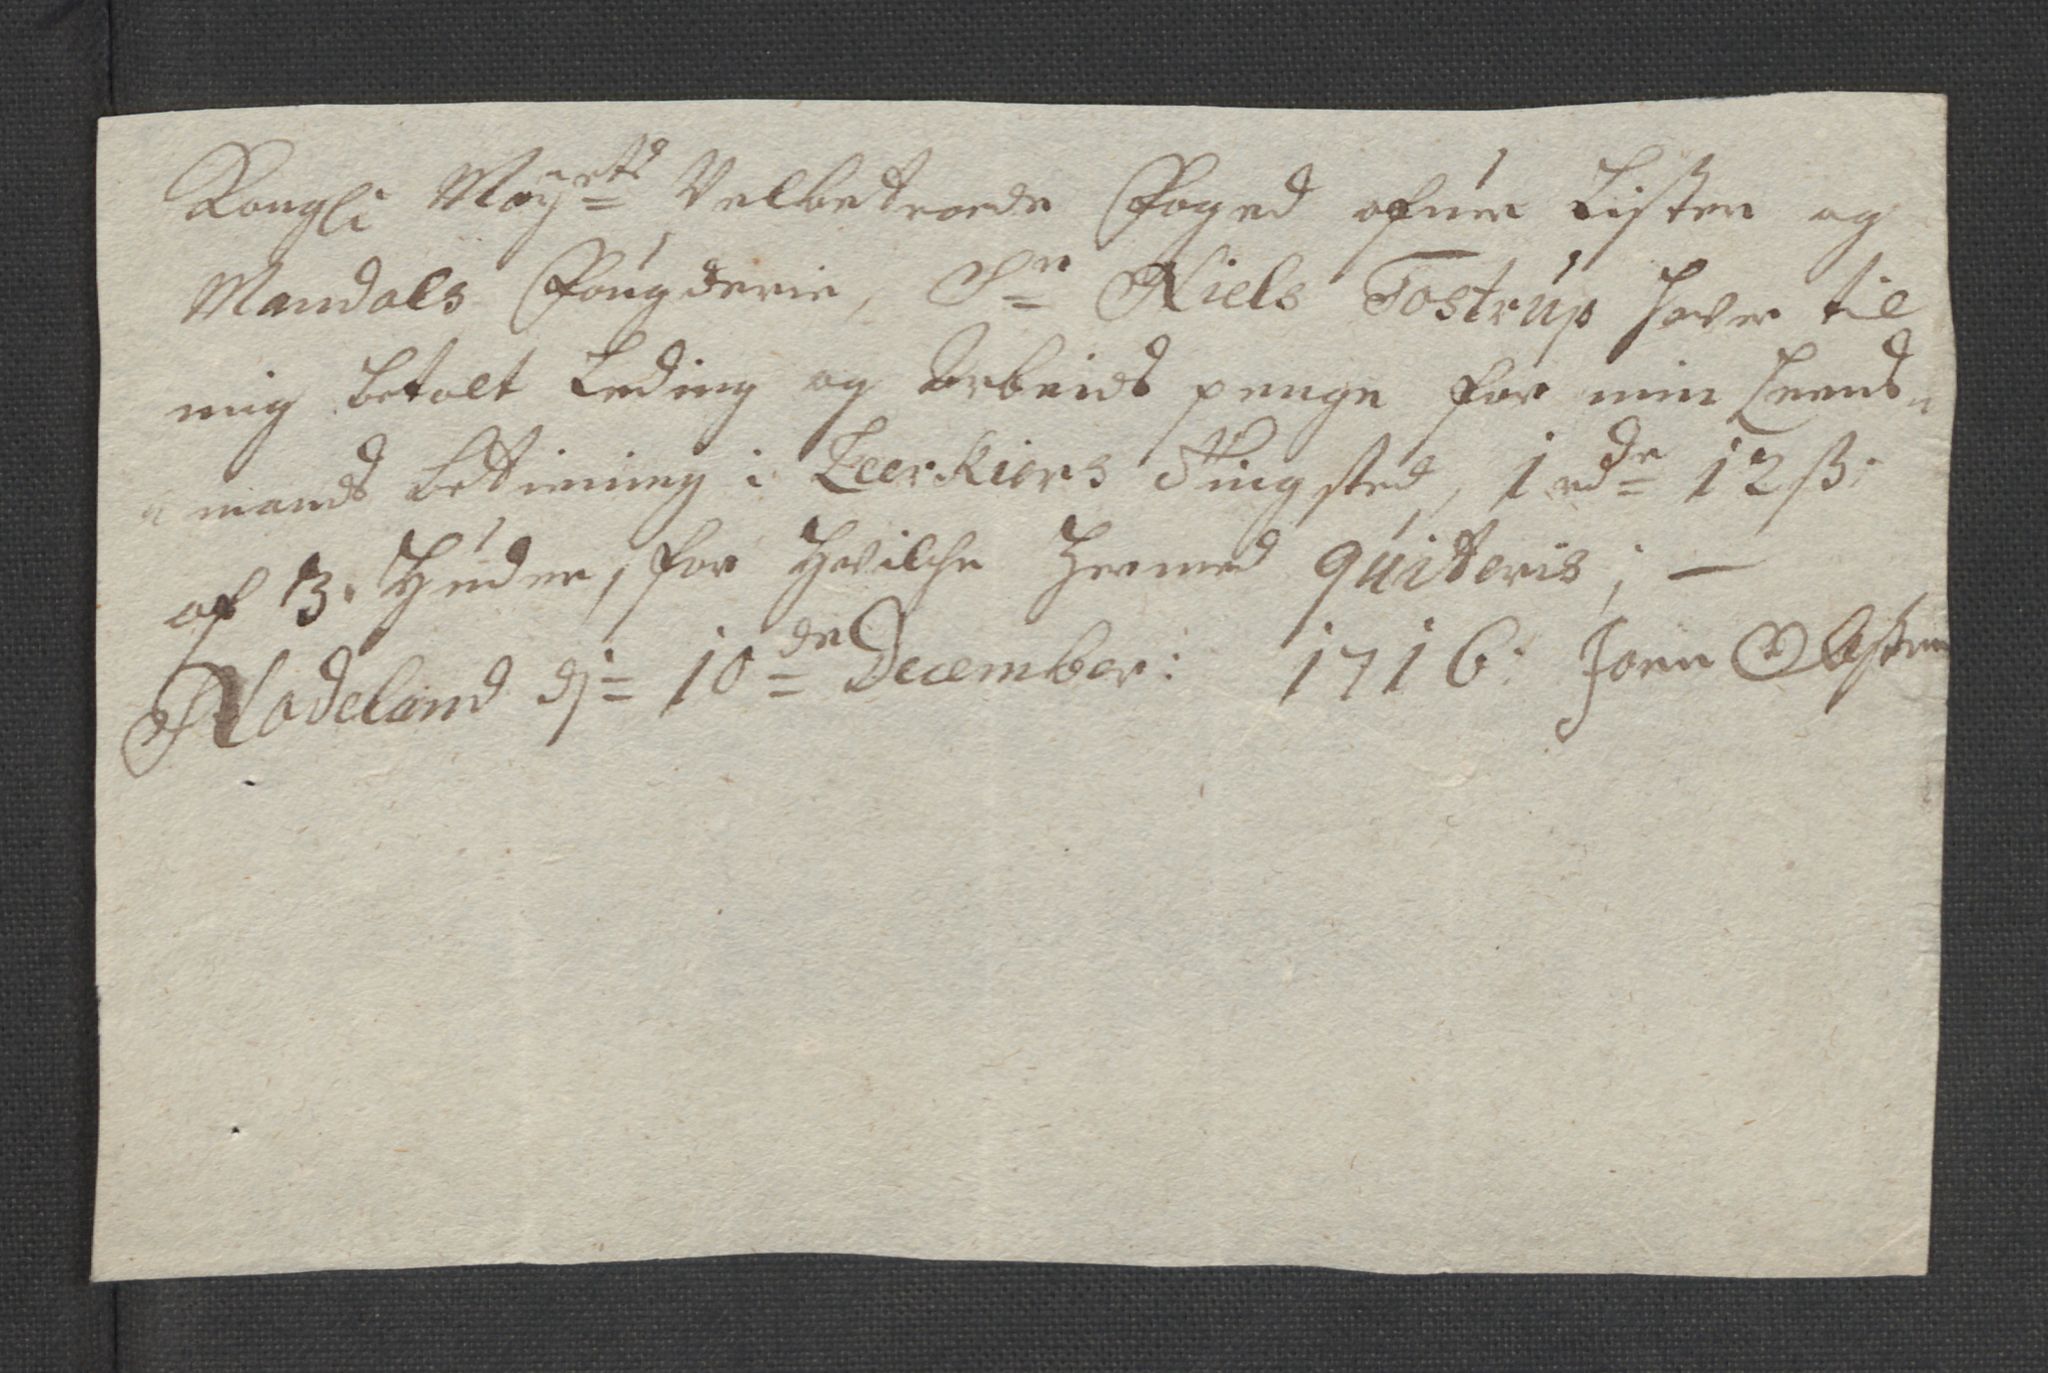 Kongli Mayets Velbetroede Foged ofuer Lister og
Mandals Fougderie, Sr Niels Tostrup haver til
mig betalt Leding og Arbeids penge for min Leens„
„mands betiening i Leerkiers Tingsted, 1 rdr 12 ß:
af 3. Huder, for hvilche hermed quiteris; —
Nodeland dj= 10de December: 1716: Joen